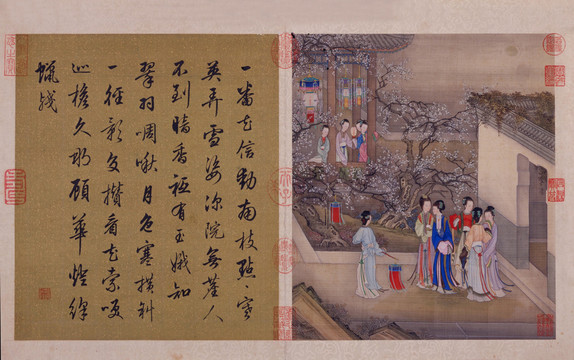 一番花信動南枝點點寒
英弄雪姿深院無塵人
不到暗香祗有玉娥知
翠羽啁啾月色寒橫斜
一徑影交攢看花索笑
巡檐久那顧華燈絳
蠟殘